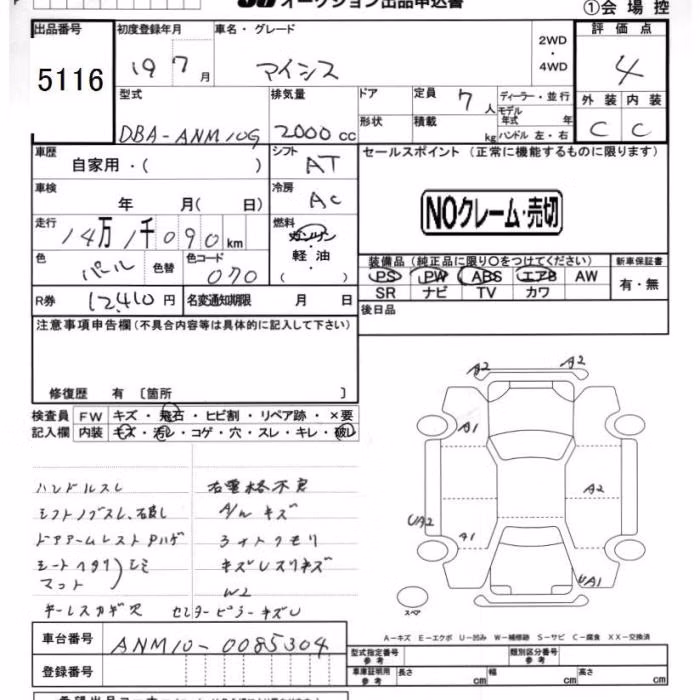 オークション出品申込書
①会場控
出品番号
5116
初度登録年月
19 7 月
車名・グレード
アイシス
2WD
・
4WD
評価点
4
外装 内装
C C
型式
DBA-ANM10G
排気量
2000 cc
ドア
形状
定員 7 人
積載 kg
ディーラー・並行
モデル年式 年
ハンドル 左・右
車歴
自家用・( )
シフト AT
車検
年 月( 日)
冷房 AC
走行
14万1千090km
燃料
ガソリン
軽油
( )
色
パール
色替
色コード
070
R券 12,410円
名変通知期限 月 日
セールスポイント (正常に機能するものに限ります)
NOクレーム・売切
装備品(純正品に限り○をつけてください)
PS PW ABS エアB AW
SR ナビ TV カワ
新車保証書
有・無
後日品
注意事項申告欄(不具合内容等は具体的に記入して下さい)
修復歴 有 〔箇所 〕
検査員 FW キズ・飛石・ヒビ割・リペア跡・×要
記入欄 内装 キズ・汚レ・コゲ・穴・スレ・キレ・破レ
ハンドルスレ
シフトノブスレ、石破し
ドアアームレストPハゲ
シートヘタリ)シミ
マット
キーレスカギ穴
右電格不良
A/nキズ
フォトクモリ
キズレスリキズ
W2
センターピラーキズU
A2 A2
A1
A2
UA2
A1
UA1
スペア
A－キズ E－エクボ U－凹み W－補修跡 S－サビ C－腐食 XX－交換済
車台番号 ANM10-0085304
登録番号
型式指定番号
参考
類別区分番号
参考
車庫証明用
参考
長さ cm
幅 cm
高さ cm